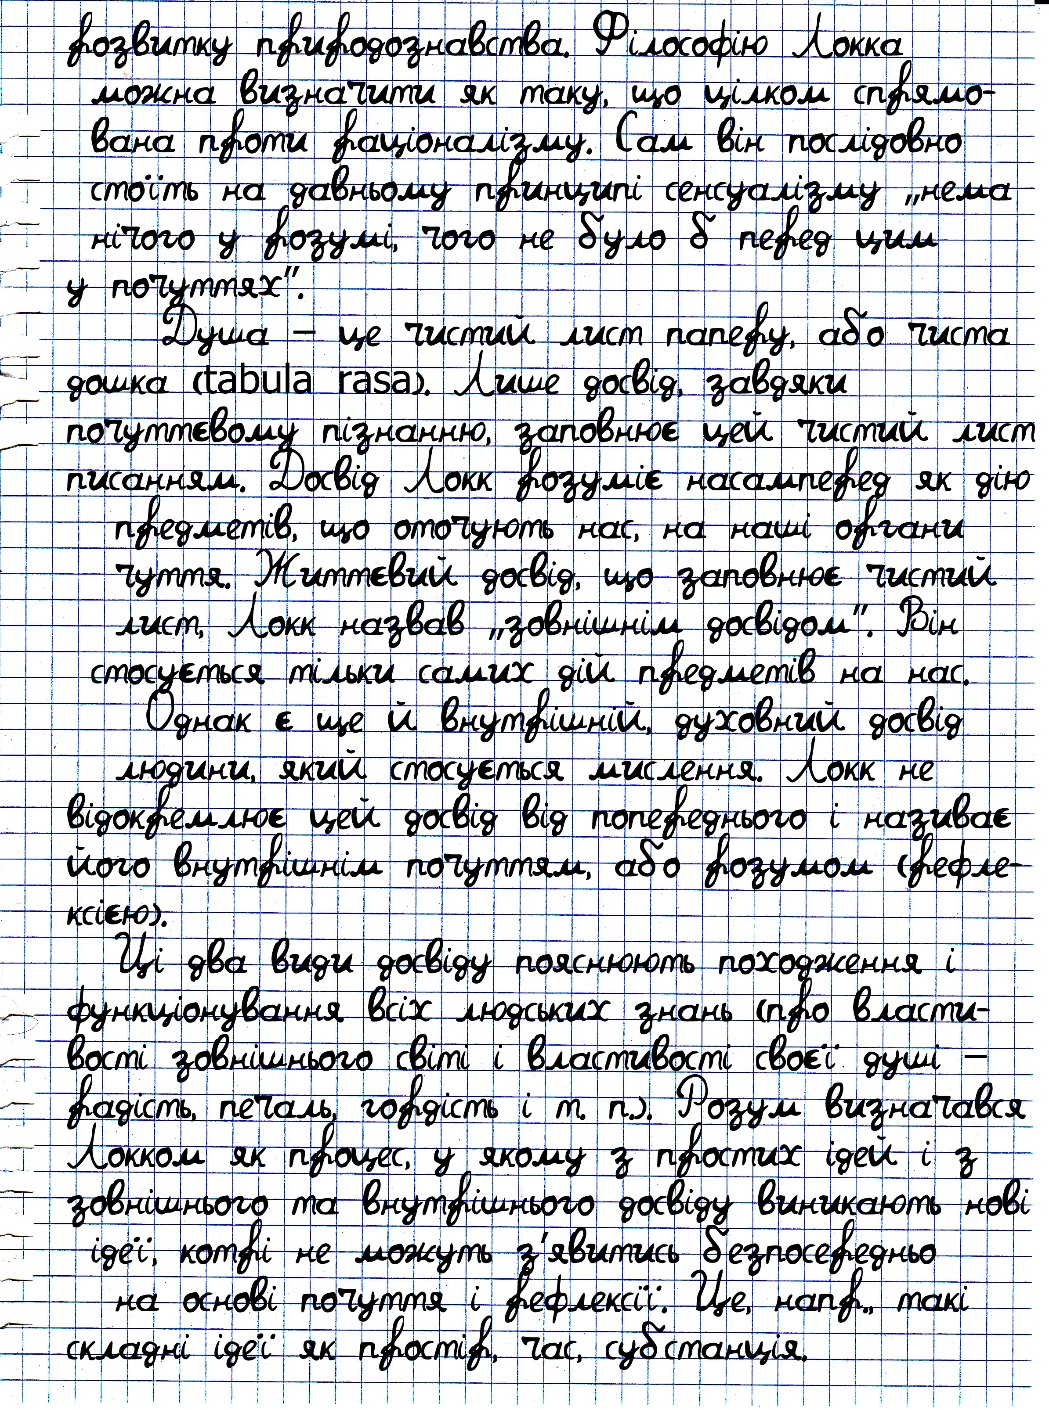 розвитку природознавства. Філософію Локка
можна визначити як таку, що цілком спрямо-
вана проти раціоналізму. Сам він послідовно
стоїть на давньому принципі сенсуалізму „нема
нічого у розумі, чого не було б перед цим
у почуттях”.
Душа – це чистий лист паперу, або чиста
дошка (tabula rasa). Лише досвід, завдяки
почуттєвому пізнанню, заповнює цей чистий лист
писанням. Досвід Локк розуміє насамперед як дію
предметів, що оточують нас, на наші органи
чуття. Життєвий досвід, що заповнює чистий
лист, Локк назвав „зовнішнім досвідом”. Він
стосується тільки самих дій предметів на нас.
Однак є ще й внутрішній, духовний досвід
людини, який стосується мислення. Локк не
відокремлює цей досвід від попереднього і називає
його внутрішнім почуттям, або розумом (рефле-
ксією).
Ці два види досвіду пояснюють походження і
функціонування всіх людських знань (про власти-
вості зовнішнього світі і властивості своєї душі –
радість, печаль, гордість і т. п.). Розум визначався
Локком як процес, у якому з простих ідей і з
зовнішнього та внутрішнього досвіду виникають нові
ідеї, котрі не можуть з'явитись безпосередньо
на основі почуття і рефлексії. Це, напр., такі
складні ідеї як простір, час, субстанція.